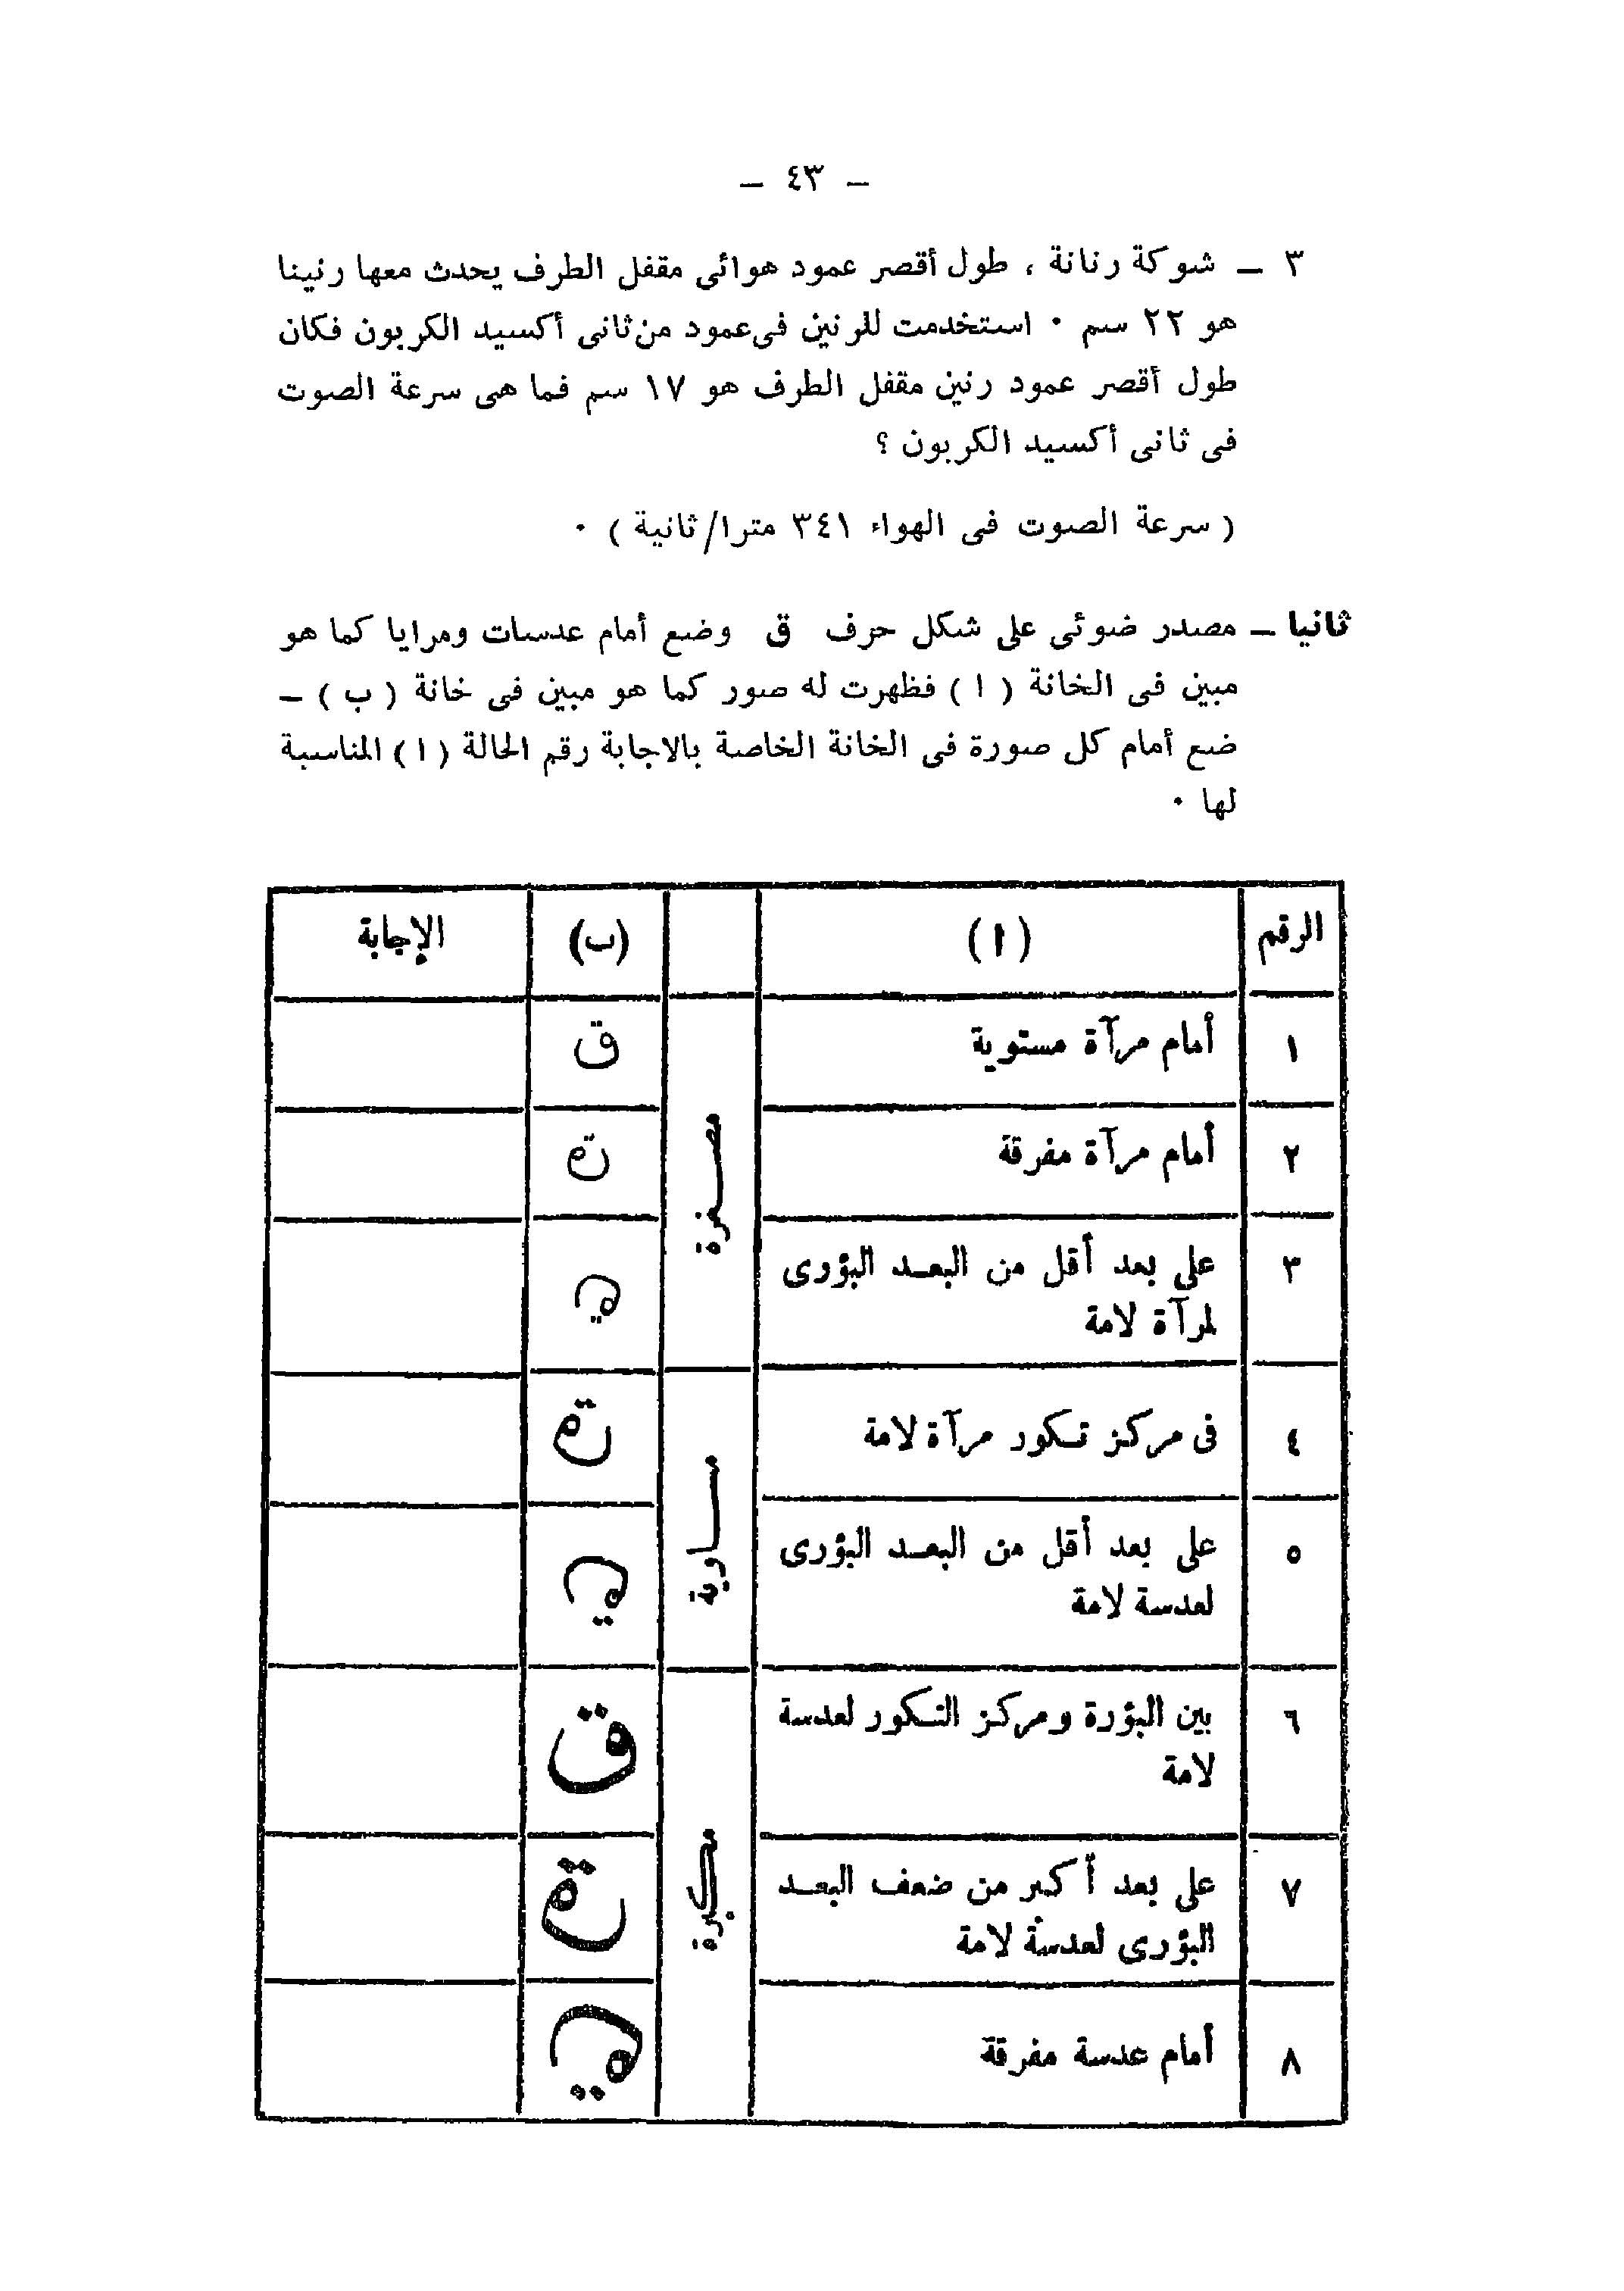 – ٤٣ –
٣ – شوكة رنانة ، طول أقصر عمود هوائى مقفل الطرف يحدث معها رنينا
هو ٢٢ سم ٠ استخدمت للرنين فى عمود من ثانى أكسيد الكربون فكان
طول أقصر عمود رنين مقفل الطرف هو ١٧ سم فما هى سرعة الصوت
فى ثانى أكسيد الكربون ؟
( سرعة الصوت فى الهواء ٣٤١ مترا/ثانية ) ٠
ثانيا – مصدر ضوئى على شكل حرف ق وضع أمام عدسات ومرايا كما هو
مبين فى الخانة ( ا ) فظهرت له صور كما هو مبين فى خانة ( ب ) –
ضع أمام كل صورة فى الخانة الخاصة بالاجابة رقم الحالة ( ا ) المناسبة
لها ٠
الرقم (ا) (ب) الإجابة
١ أمام مرآة مستوية ق
٢ أمام مرآة مفرقة
مصغرة
٣ على بعد أقل من البعد البؤرى
لمرآة لامة
٤ فى مركز تكور مرآة لامة
مساوية
٥ على بعد أقل من البعد البؤرى
لعدسة لامة
٦ بين البؤرة ومركز التكور لعدسة ق
لامة
مكبرة
٧ على بعد أكبر من ضعف البعد
البؤرى لعدسة لامة
٨ أمام عدسة مفرقة